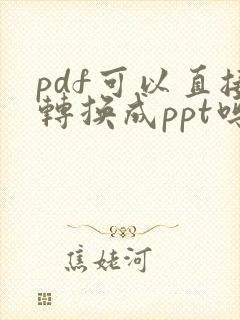 pdf可以直接
轉換成ppt嗎
焦姥河